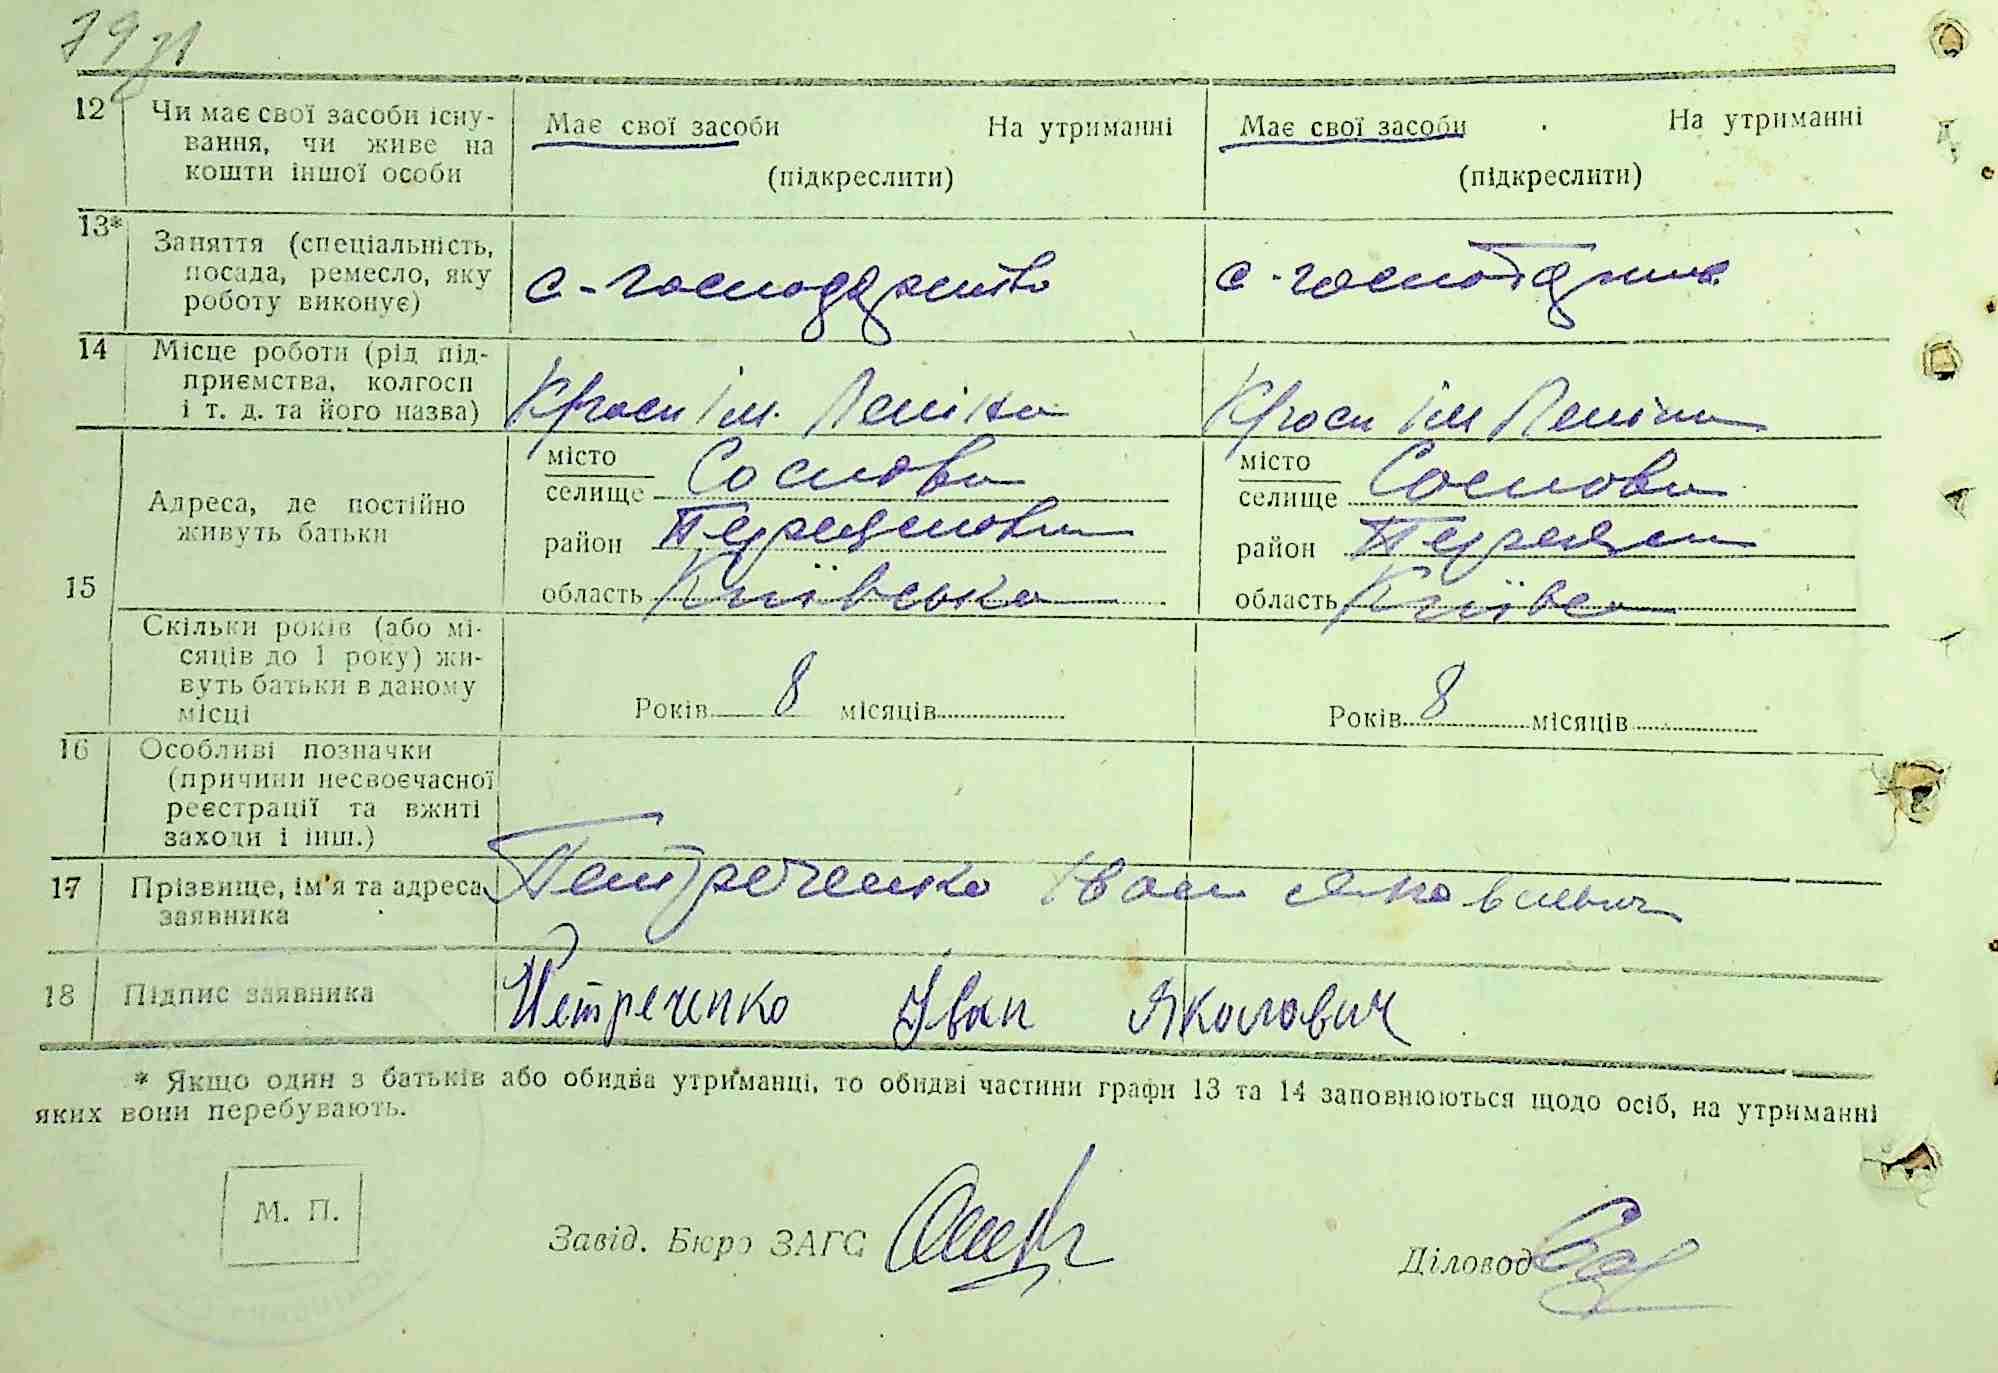 79зв
12 Чи має свої засоби існу-
вання, чи живе на
кошти іншої особи
Має свої засоби На утриманні
(підкреслити)
Має свої засоби На утриманні
(підкреслити)
13* Заняття (спеціальність,
посада, ремесло, яку
роботу виконує)
с-господарство
с-господарка
14 Місце роботи (рід під-
приємства, колгосп
і т. д. та його назва)
К/госп Ім. Леніна
К/госп Ім Леніна
15 Адреса, де постійно
живуть батьки
місто
селище Соснова
район Переяславськ
область Київська
місто
селище Соснова
район Переясл
область Київсь
Скільки років (або мі-
сяців до 1 року) жи-
вуть батьки в даному
місці
Років 8 місяців
Років 8 місяців
16 Особливі позначки
(причини несвоєчасної
реєстрації та вжиті
заходи і інш.)
17 Прізвище, ім'я та адреса
заявника
Петреченко Іван Якович
18 Підпис заявника
Петреченко Іван
* Якщо один з батьків або обидва утриманці, то обидві частини графи 13 та 14 заповнюються щодо осіб, на утриманні
яких вони перебувають.
М. П.
Завід. Бюро ЗАГС
Діловод